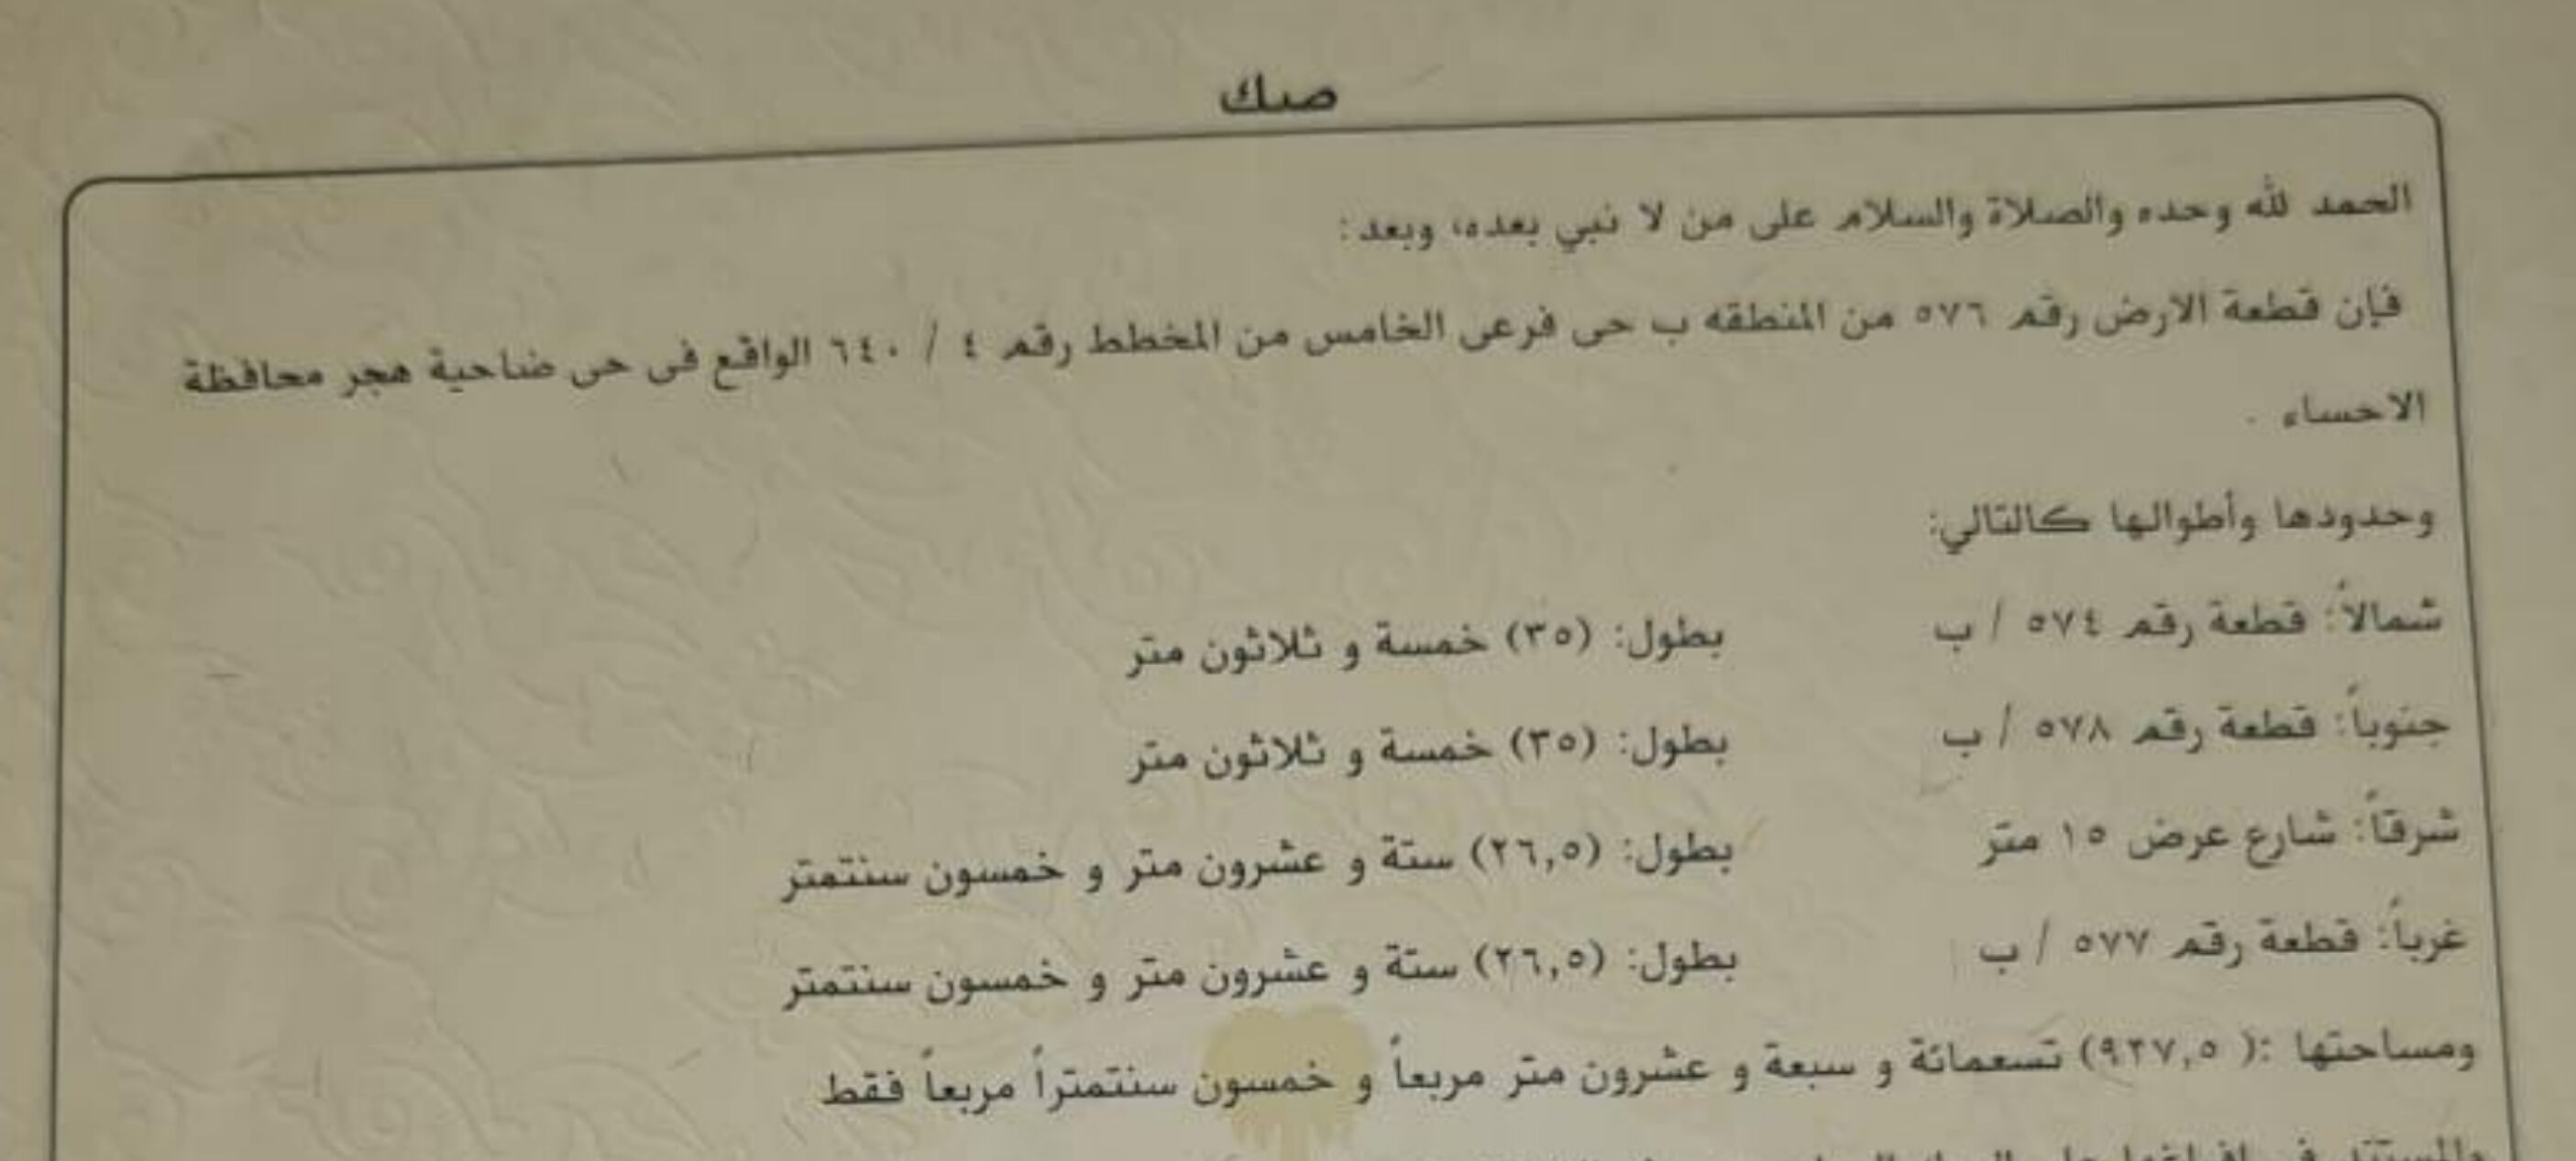 صك
الحمد لله وحده والصلاة والسلام على من لا نبي بعده، وبعد:
فإن قطعة الارض رقم ٥٧٦ من المنطقه ب حى فرعى الخامس من المخطط رقم ٤ / ٦٤٠ الواقع فى حى ضاحية هجر محافظة
الاحساء .
وحدودها وأطوالها كالتالي:
شمالاً: قطعة رقم ٥٧٤ / ب بطول: (٣٥) خمسة و ثلاثون متر
جنوباً: قطعة رقم ٥٧٨ / ب بطول: (٣٥) خمسة و ثلاثون متر
شرقاً: شارع عرض ١٥ متر بطول: (٢٦,٥) ستة و عشرون متر و خمسون سنتمتر
غرباً: قطعة رقم ٥٧٧ / ب بطول: (٢٦,٥) ستة و عشرون متر و خمسون سنتمتر
ومساحتها :( ٩٢٧,٥) تسعمائة و سبعة و عشرون متر مربعاً و خمسون سنتمتراً مربعاً فقط